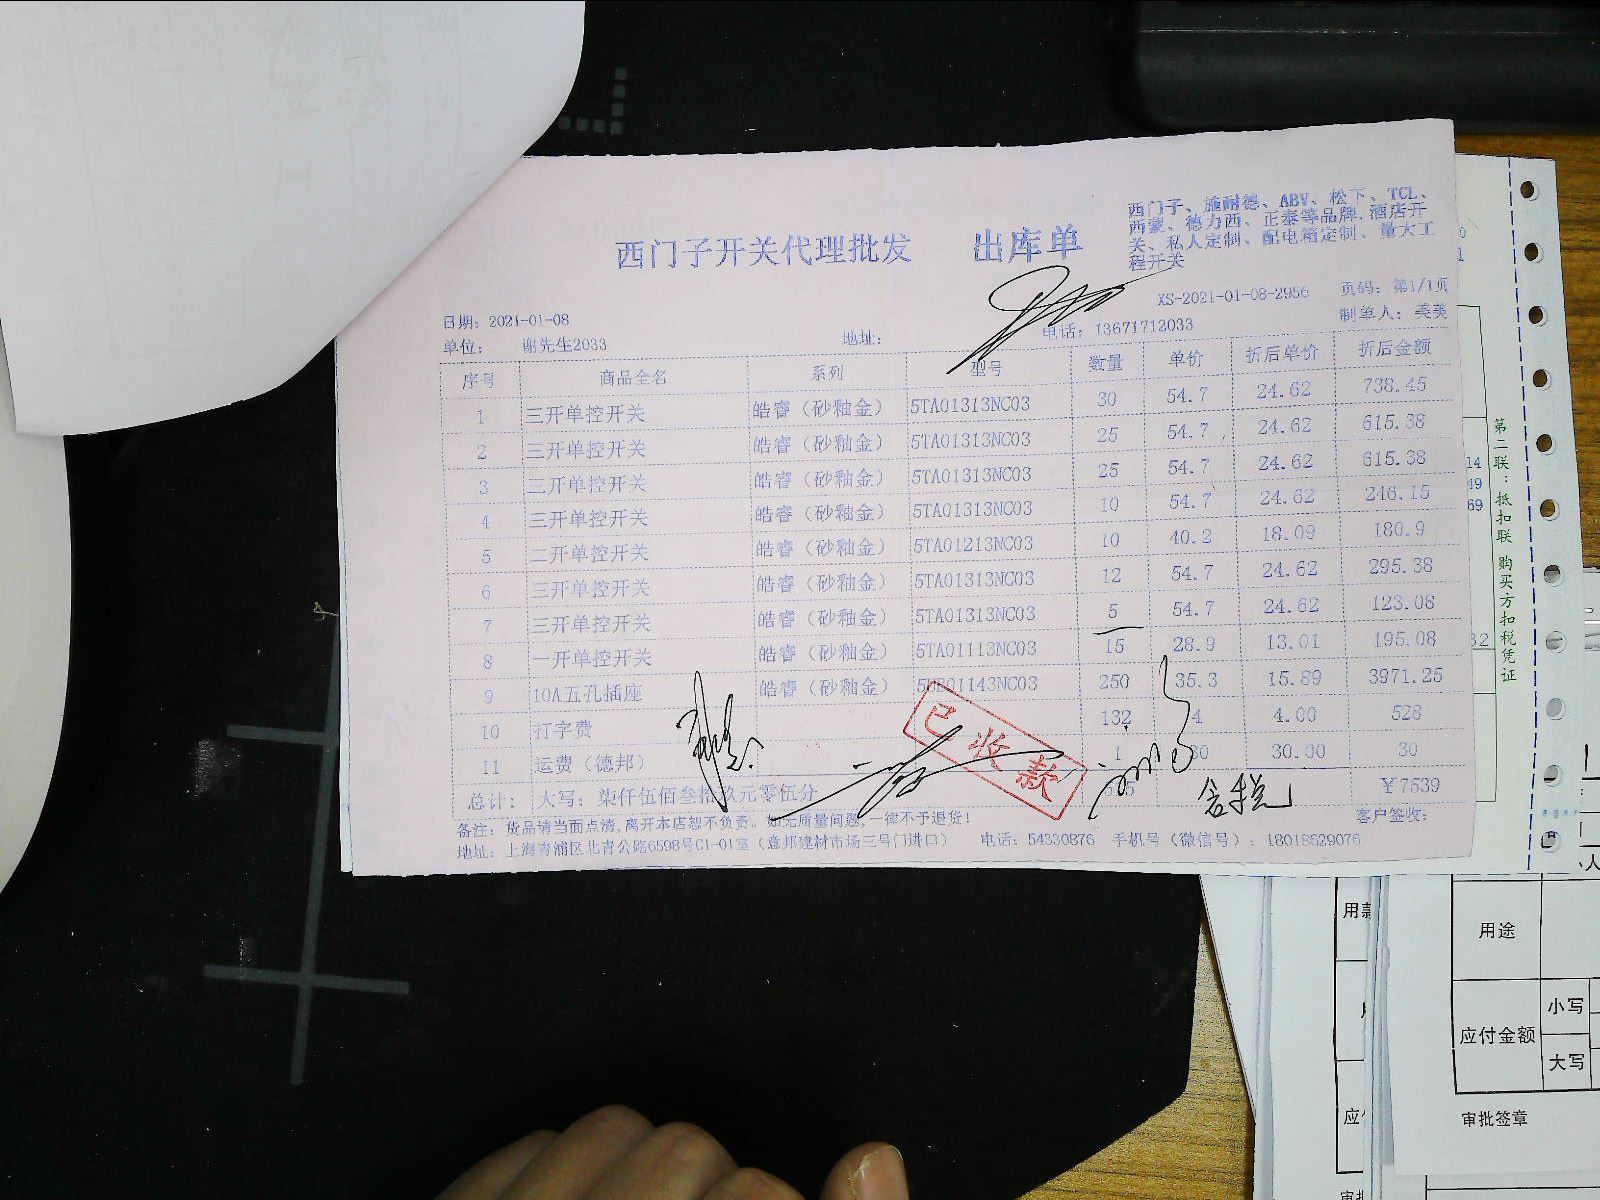 西门子开关代理批发 出库单
西门子、施耐德、ABV、松下、TCL、
西蒙、德力西、正泰等品牌.酒店开
关、私人定制、配电箱定制、量大工
程开关
XS-2021-01-08-2956 页码：第1/1页
日期：2021-01-08 制单人：美美
单位： 谢先生2033 地址： 电话：13671712033
序号 商品全名 系列 型号 数量 单价 折后单价 折后金额
1 三开单控开关 皓睿（砂釉金） 5TA01313NC03 30 54.7 24.62 738.45
2 三开单控开关 皓睿（砂釉金） 5TA01313NC03 25 54.7 24.62 615.38
3 三开单控开关 皓睿（砂釉金） 5TA01313NC03 25 54.7 24.62 615.38
4 三开单控开关 皓睿（砂釉金） 5TA01313NC03 10 54.7 24.62 246.15
5 二开单控开关 皓睿（砂釉金） 5TA01213NC03 10 40.2 18.09 180.9
6 三开单控开关 皓睿（砂釉金） 5TA01313NC03 12 54.7 24.62 295.38
7 三开单控开关 皓睿（砂釉金） 5TA01313NC03 5 54.7 24.62 123.08
8 一开单控开关 皓睿（砂釉金） 5TA01113NC03 15 28.9 13.01 195.08
9 10A五孔插座 皓睿（砂釉金） 5UB01143NC03 250 35.3 15.89 3971.25
10 打字费 132 4 4.00 528
11 运费（德邦） 1 30 30.00 30
总计： 大写：柒仟伍佰叁拾玖元零伍分 ￥7539
已收款
含税
备注：货品请当面点清,离开本店恕不负责。如无质量问题,一律不予退货！ 客户签收：
地址：上海青浦区北青公路6598号C1-01室（意邦建材市场三号门进口） 电话：54330876 手机号（微信号）：18018629076
第二联：抵扣联 购买方扣税凭证
14
49
69
用途
应付金额
小写
大写
审批签章